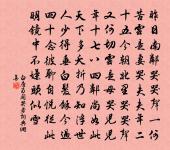 昨日南鄰哭哭聲一何
苦雲是妻哭夫夫年二
十五今朝北里哭哭聲
又何切雲是母哭兒兒
年十七八四鄰尚如此
天下多夭折乃知浮世
人少得垂白髮餘今過
四十念彼聊自悅從此
明鏡中不嫌頭似雪
白居易聞哭者詩詞典網